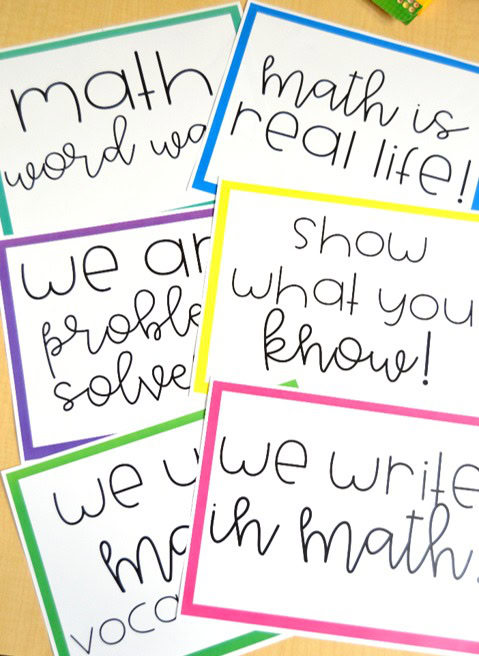 math
word wa
math is
real life!
we ar
proble
solve
show
what you
know!
we u
ma
voca
we write
in math.